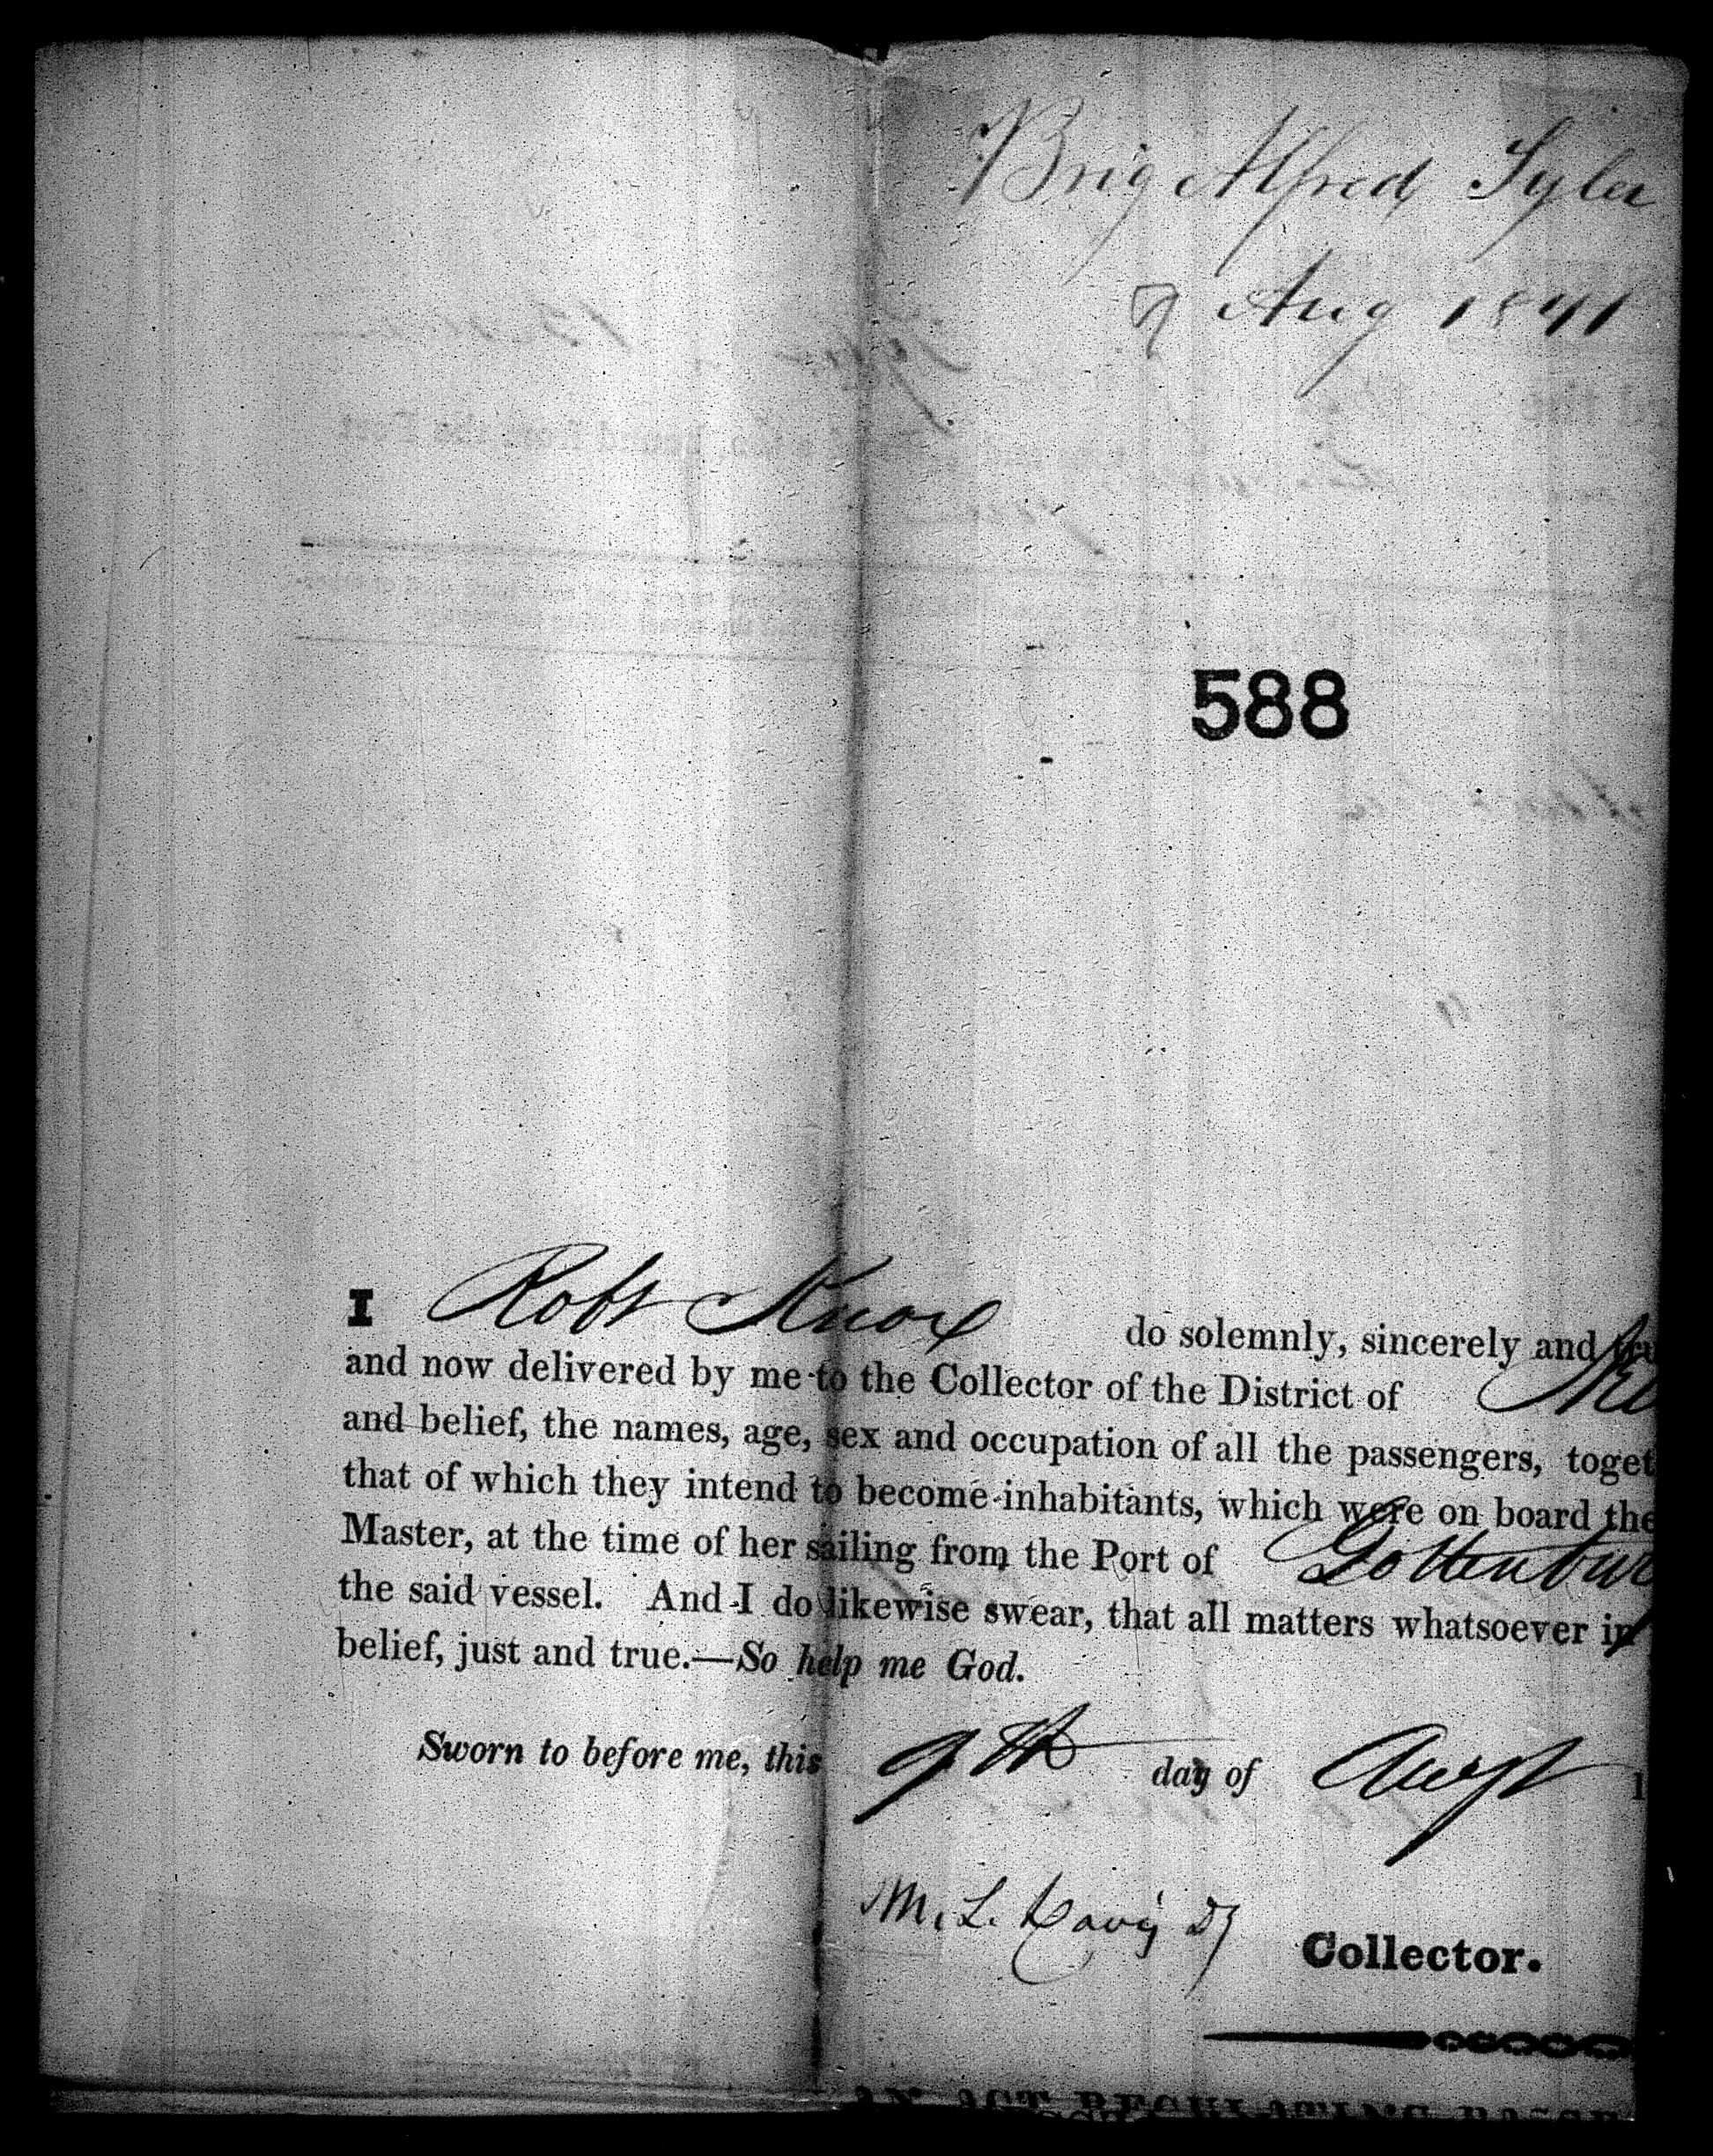 Brig Alfred Tyler
9 Aug 1841
588
I Robt Knox do solemnly, sincerely and tru
and now delivered by me to the Collector of the District of Ne
and belief, the names, age, sex and occupation of all the passengers, toget
that of which they intend to become inhabitants, which were on board the
Master, at the time of her sailing from the Port of Gottenbur
the said vessel. And I do likewise swear, that all matters whatsoever in
belief, just and true.—So help me God.
Sworn to before me, this 9th day of Augst 1
M. L. Davis Dy Collector.
AN ACT REGULATING PASSE